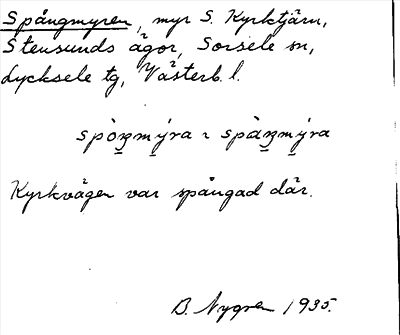 Spångmyren, myr S. Kyrktjärn,
Stensunds ägor, Sorsele sn,
Lycksele tg, Västerb. l.
spòŋmýra ɿ spàŋmýra
Kyrkvägen var spångad där.
B. Nygren 1935.